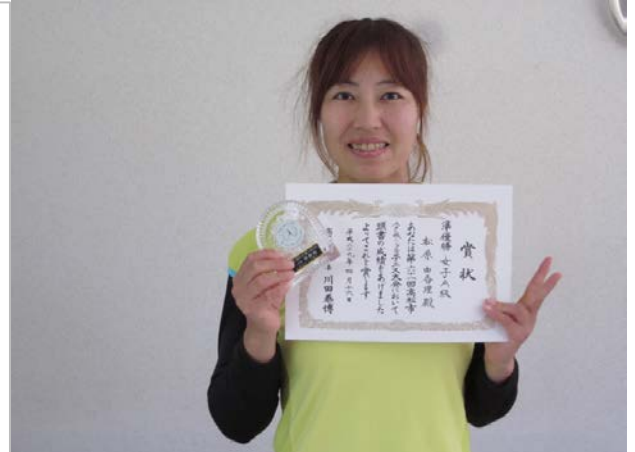 賞状
準優勝 女子A級
松原 由香理 殿
あなたは第 回高松市
テニス大会において
頭書の成績をあげました
よってこれを賞します
平成二九年四月十六日
川田泰博